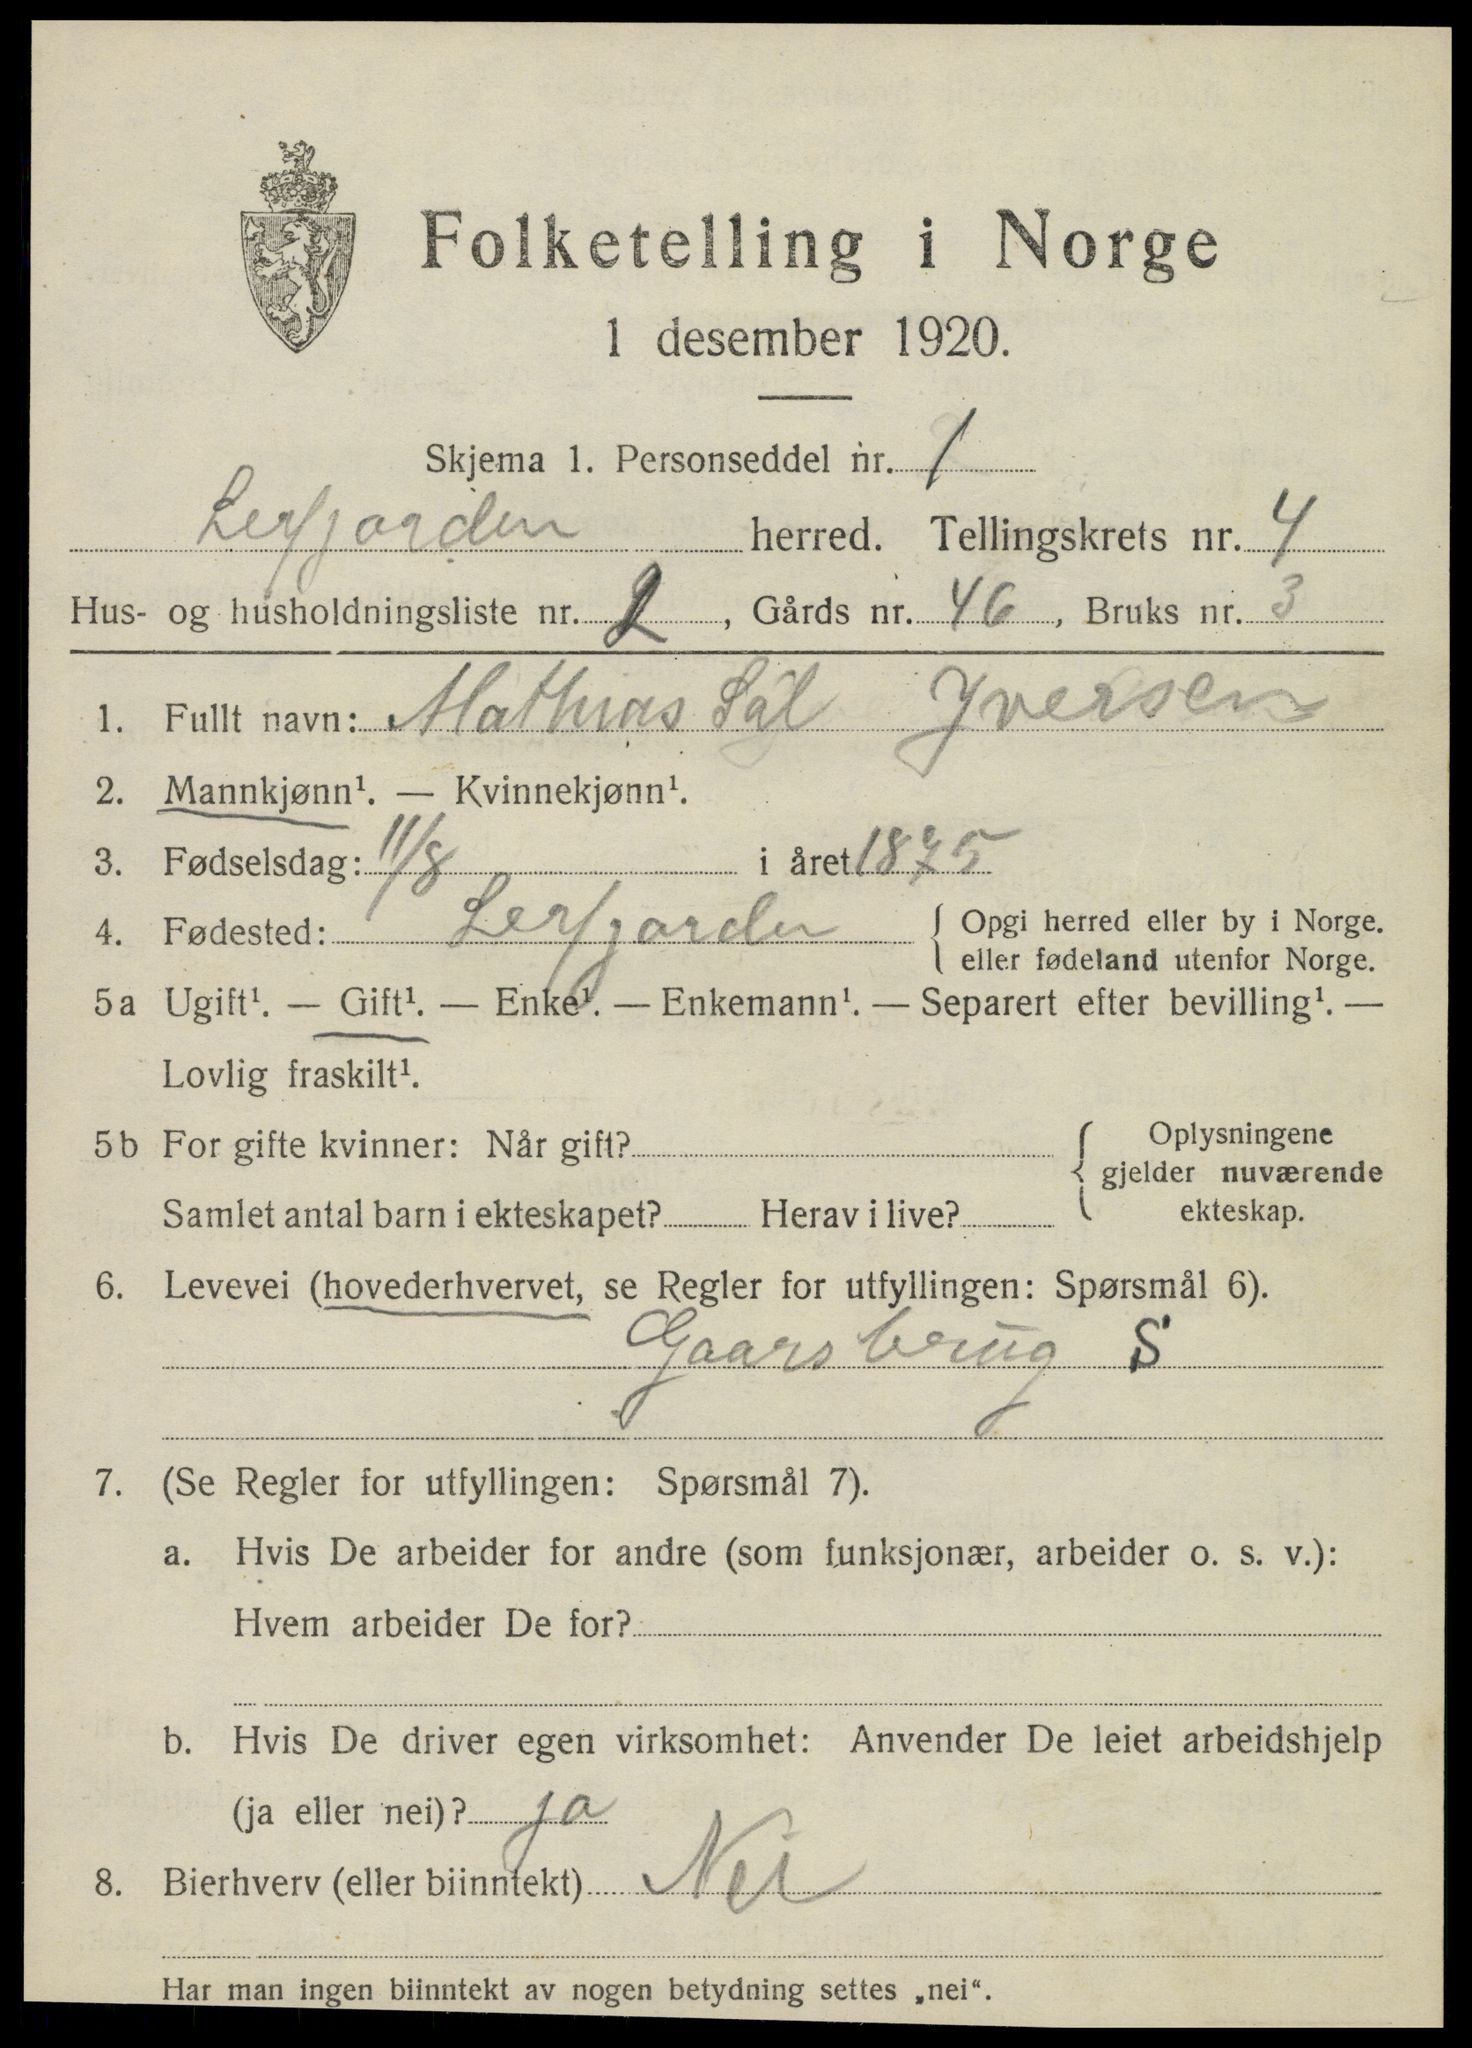 Folketelling i Norge
1 desember 1920.
Skjema 1. Personseddel nr. 1
Leirfjorden herred. Tellingskrets nr. 4
Hus- og husholdningsliste nr. 2, Gårds nr. 46, Bruks nr. 3
1. Fullt navn: Mathias Iversen
2. Mannkjønn¹. — Kvinnekjønn¹.
3. Fødselsdag: 11/8 i året 1875
4. Fødested: Leirfjorden { Opgi herred eller by i Norge.
eller fødeland utenfor Norge.
5a Ugift¹. — Gift¹. — Enke¹. — Enkemann¹. — Separert efter bevilling¹. —
Lovlig fraskilt¹.
5b For gifte kvinner: Når gift? { Oplysningene
gjelder nuværende
Samlet antal barn i ekteskapet? Herav i live? ekteskap.
6. Levevei (hovederhvervet, se Regler for utfyllingen: Spørsmål 6).
Gaarsbrug S
7. (Se Regler for utfyllingen: Spørsmål 7).
a. Hvis De arbeider for andre (som funksjonær, arbeider o. s. v.):
Hvem arbeider De for?
b. Hvis De driver egen virksomhet: Anvender De leiet arbeidshjelp
(ja eller nei)? ja
8. Bierhverv (eller biinntekt) Nei
Har man ingen biinntekt av nogen betydning settes „nei“.